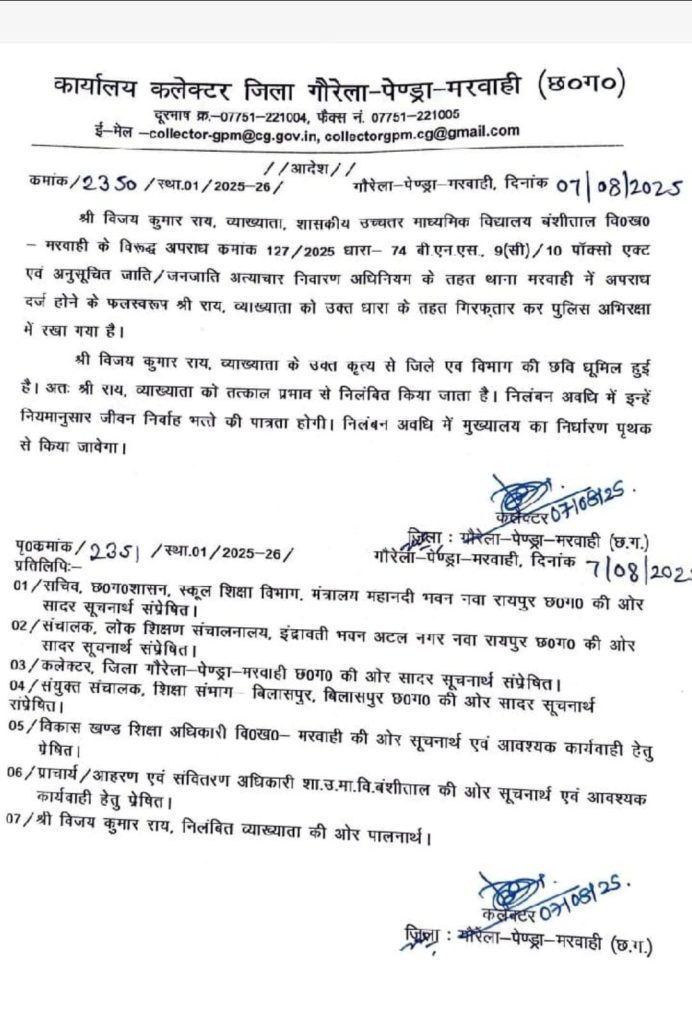 कार्यालय कलेक्टर जिला गौरेला-पेण्ड्रा-मरवाही (छ०ग०)
दूरभाष क्र.-07751-221004, फैक्स नं. 07751-221005
ई-मेल -collector-gpm@cg.gov.in, collectorgpm.cg@gmail.com
//आदेश//
कमांक/2350/स्था.01/2025-26/ गौरेला-पेण्ड्रा-गरवाही, दिनांक 07/08/2025
श्री विजय कुमार राय, व्याख्याता, शासकीय उच्चतर माध्यमिक विद्यालय बंशीताल वि०ख०
- मरवाही के विरूद्ध अपराध कमांक 127/2025 धारा- 74 बी.एन.एस., 9(सी)/10 पॉक्सो एक्ट
एवं अनुसूचित जाति/जनजाति अत्याचार निवारण अधिनियम के तहत थाना मरवाही में अपराध
दर्ज होने के फलस्वरूप श्री राय, व्याख्याता को उक्त धारा के तहत गिरफ्तार कर पुलिस अभिरक्षा
में रखा गया है।
श्री विजय कुमार राय, व्याख्याता के उक्त कृत्य से जिले एव विभाग की छवि धूमिल हुई
है। अतः श्री राय, व्याख्याता को तत्काल प्रभाव से निलंबित किया जाता है। निलंबन अवधि में इन्हें
नियमानुसार जीवन निर्वाह भत्ते की पात्रता होगी। निलंबन अवधि में मुख्यालय का निर्धारण पृथक
से किया जावेगा।
कलेक्टर 07/08/25.
जिला : गौरेला-पेण्ड्रा-मरवाही (छ.ग.)
पृ०कमांक/2351/स्था.01/2025-26/ गौरेला-पेण्ड्रा-मरवाही, दिनांक 7/08/202
प्रतिलिपिः-
01/सचिव, छ०ग०शासन, स्कूल शिक्षा विभाग, मंत्रालय महानदी भवन नवा रायपुर छ०ग० की ओर
सादर सूचनार्थ संप्रेषित।
02/संचालक, लोक शिक्षण संचालनालय, इंद्रावती भवन अटल नगर नवा रायपुर छ०ग० की ओर
सादर सूचनार्थ संप्रेषित।
03/कलेक्टर, जिला गौरेला-पेण्ड्रा-मरवाही छ०ग० की ओर सादर सूचनार्थ संप्रेषित।
04/संयुक्त संचालक, शिक्षा संभाग- बिलासपुर, बिलासपुर छ०ग० की ओर सादर सूचनार्थ
संप्रेषित।
05/विकास खण्ड शिक्षा अधिकारी वि०ख०- मरवाही की ओर सूचनार्थ एवं आवश्यक कार्यवाही हेतु
प्रेषित।
06/प्राचार्य/आहरण एवं संवितरण अधिकारी शा.उ.मा.वि.बंशीताल की ओर सूचनार्थ एवं आवश्यक
कार्यवाही हेतु प्रेषित।
07/श्री विजय कुमार राय, निलंबित व्याख्याता की ओर पालनार्थ।
कलेक्टर 07/08/25.
जिला : गौरेला-पेण्ड्रा-मरवाही (छ.ग.)